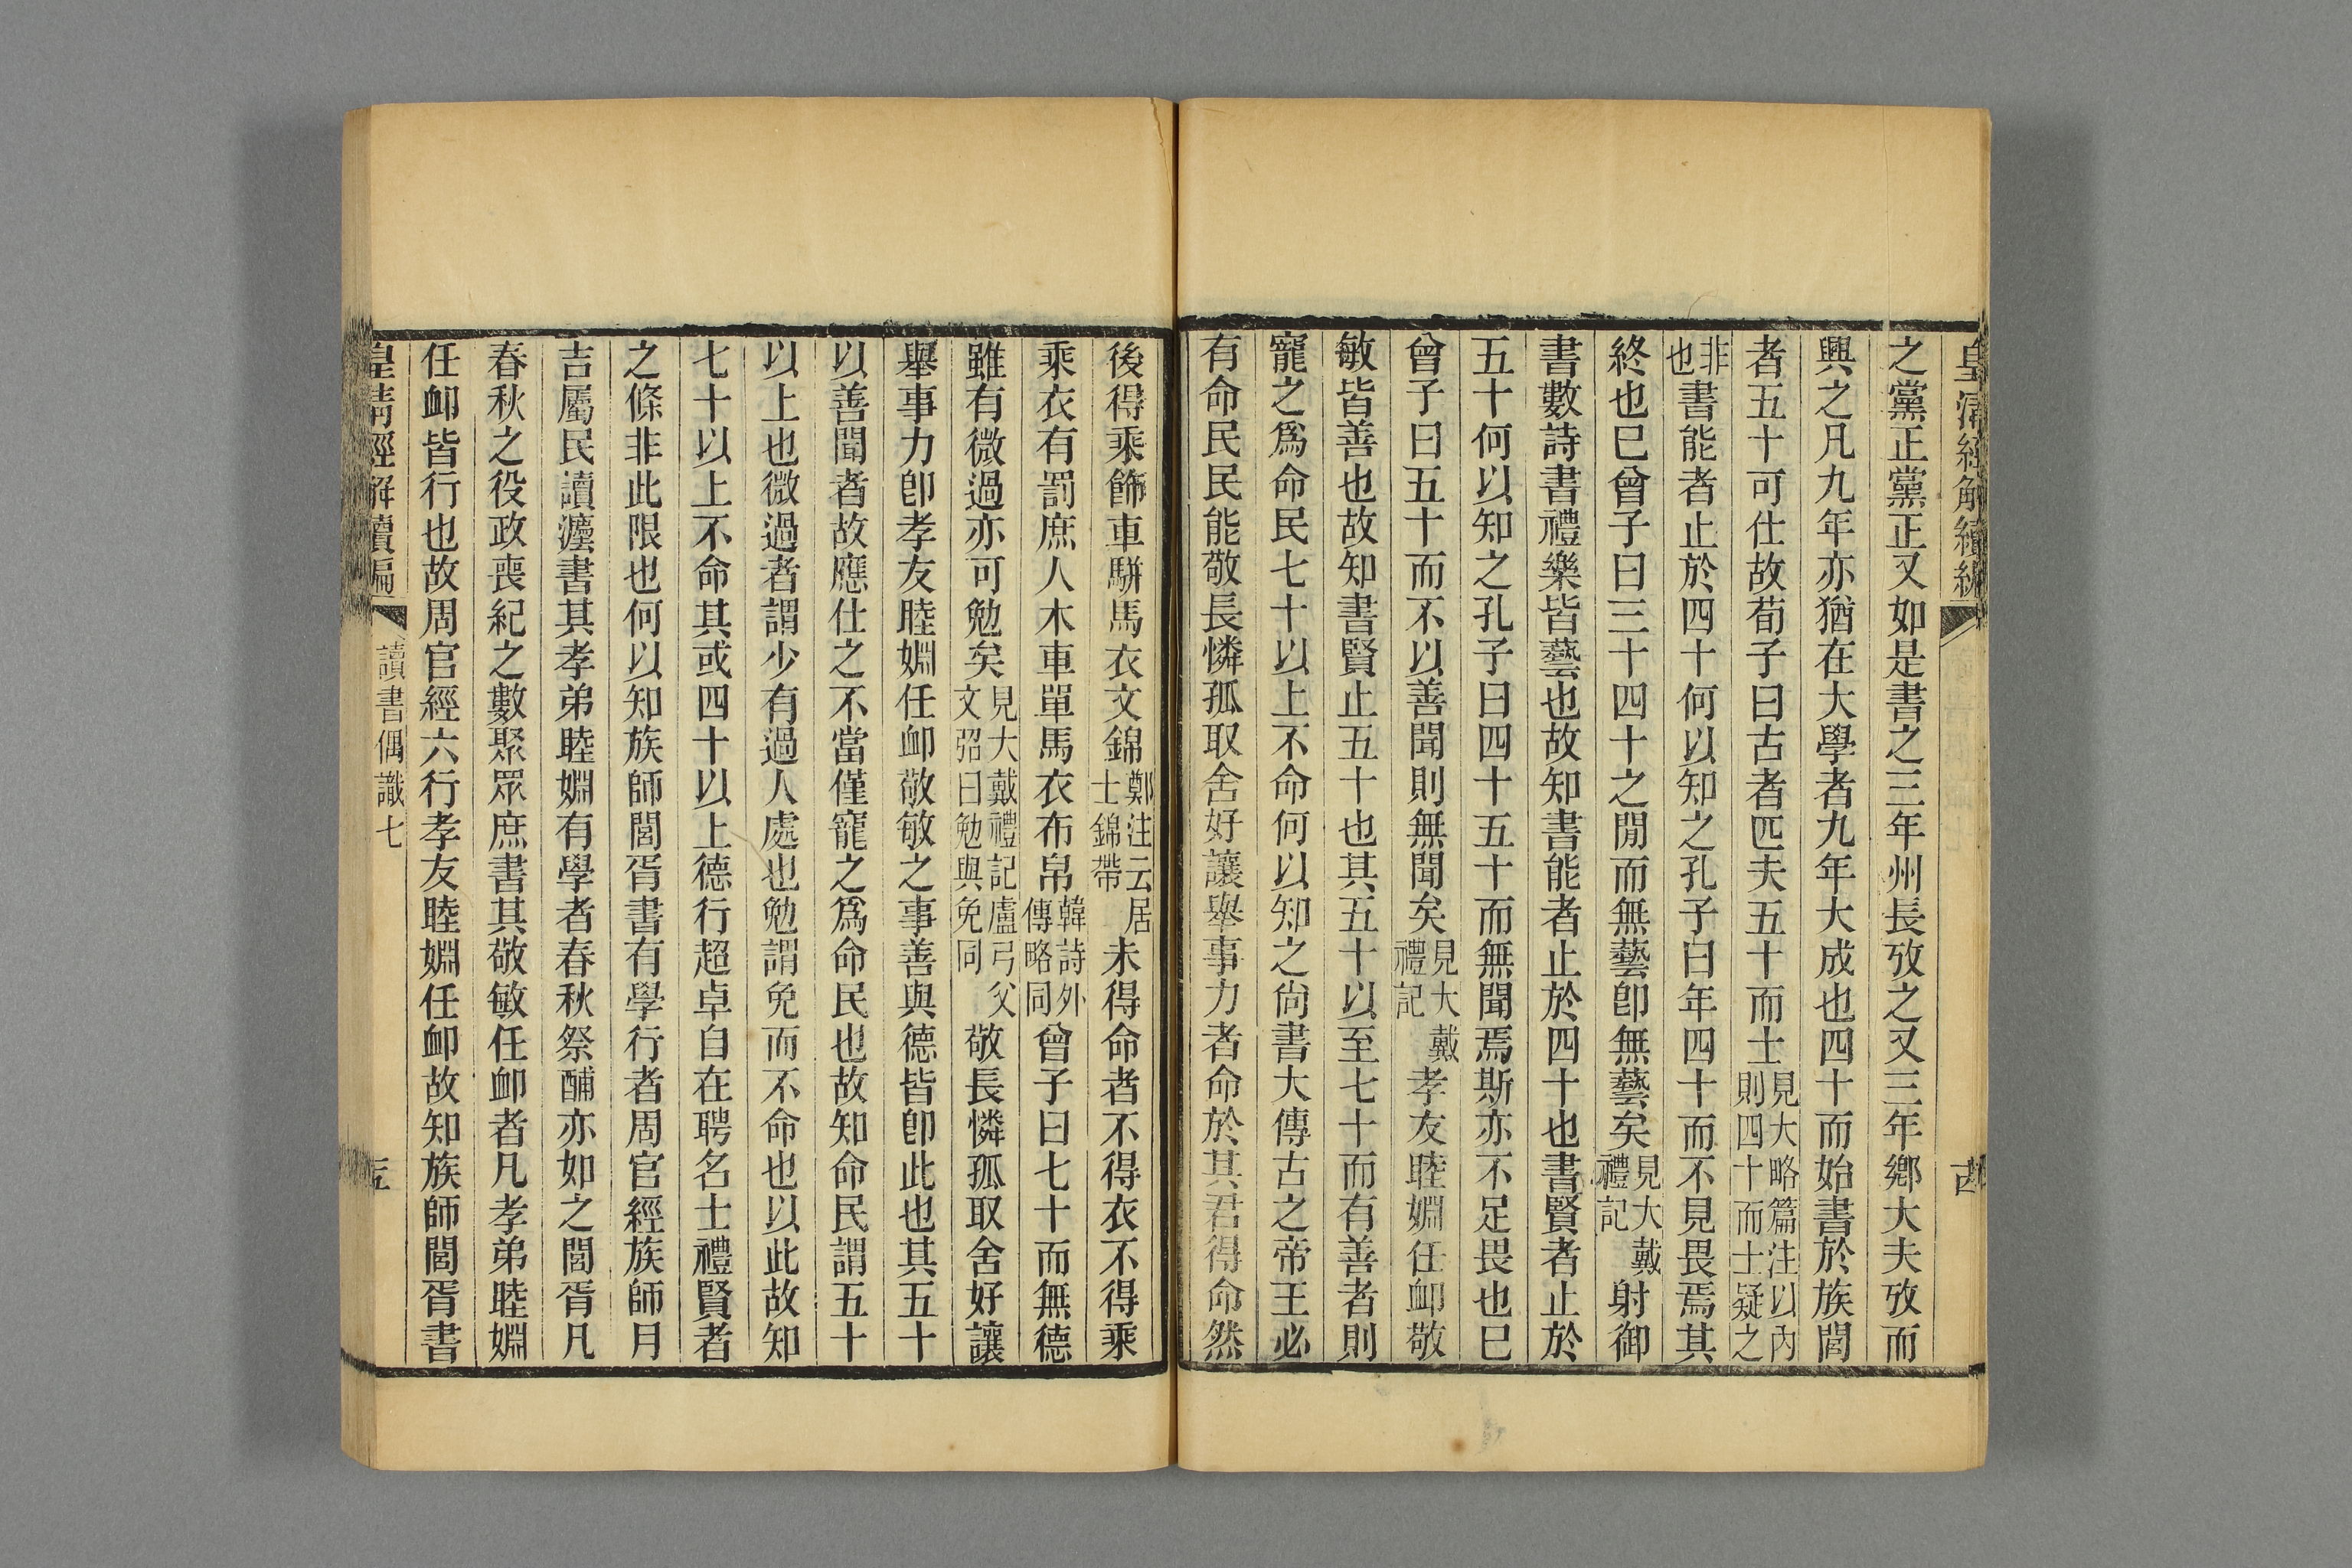 皇清經解續編
之黨正黨正又如是書之三年州長攷之又三年鄉大夫攷而
興之凡九年亦猶在大學者九年大成也四十而始書於族閭
者五十可仕故荀子曰古者匹夫五十而士見大略篇注以內則四十而士疑之
非也書能者止於四十何以知之孔子曰年四十而不見畏焉其
終也已曾子曰三十四十之閒而無藝卽無藝矣見大戴禮記射御
書數詩書禮樂皆藝也故知書能者止於四十也書賢者止於
五十何以知之孔子曰四十五十而無聞焉斯亦不足畏也已
曾子曰五十而不以善聞則無聞矣見大戴禮記孝友睦婣任卹敬
敏皆善也故知書賢止五十也其五十以至七十而有善者則
寵之爲命民七十以上不命何以知之尙書大傳古之帝王必
有命民民能敬長憐孤取舍好讓舉事力者命於其君得命然
後得乘飾車駢馬衣文錦鄭注云居士錦帶未得命者不得衣不得乘
乘衣有罰庶人木車單馬衣布帛韓詩外傳略同曾子曰七十而無德
雖有微過亦可勉矣見大戴禮記盧弓父文弨曰勉與免同敬長憐孤取舍好讓
舉事力卽孝友睦婣任卹敬敏之事善與德皆卽此也其五十
以善聞者故應仕之不當僅寵之爲命民也故知命民謂五十
以上也微過者謂少有過人處也勉謂免而不命也以此故知
七十以上不命其或四十以上德行超卓自在聘名士禮賢者
之條非此限也何以知族師閭胥書有學行者周官經族師月
吉屬民讀灋書其孝弟睦婣有學者春秋祭酺亦如之閭胥凡
春秋之役政喪紀之數聚眾庶書其敬敏任卹者凡孝弟睦婣
任卹皆行也故周官經六行孝友睦婣任卹故知族師閭胥書
皇清經解續編 讀書偶識七